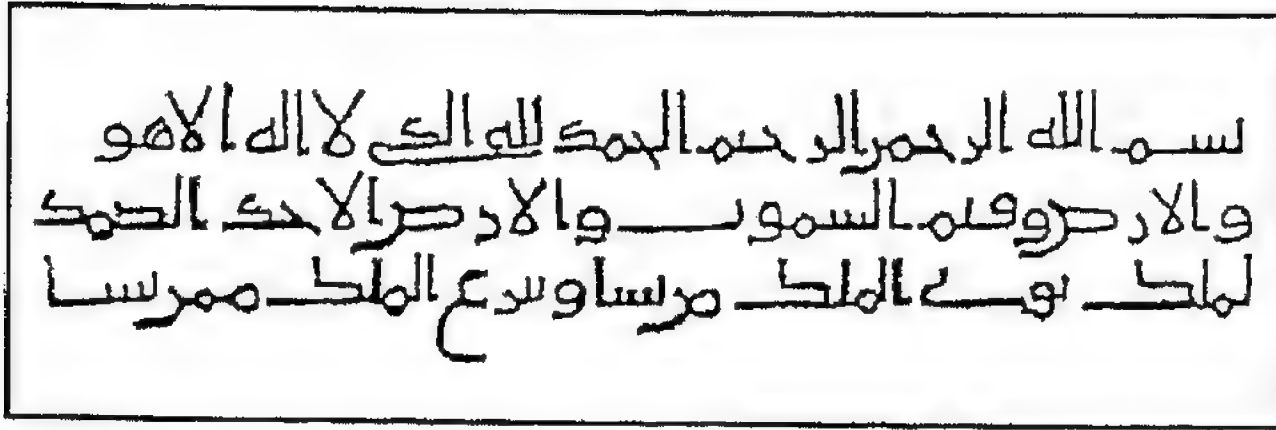 بسم الله الرحمن الرحيم الحمد لله الذي لا اله الا هو
والارض وقيم السموت والارض الاحد الصمد
لملك توتي الملك من تشا وتنزع الملك ممن تشا